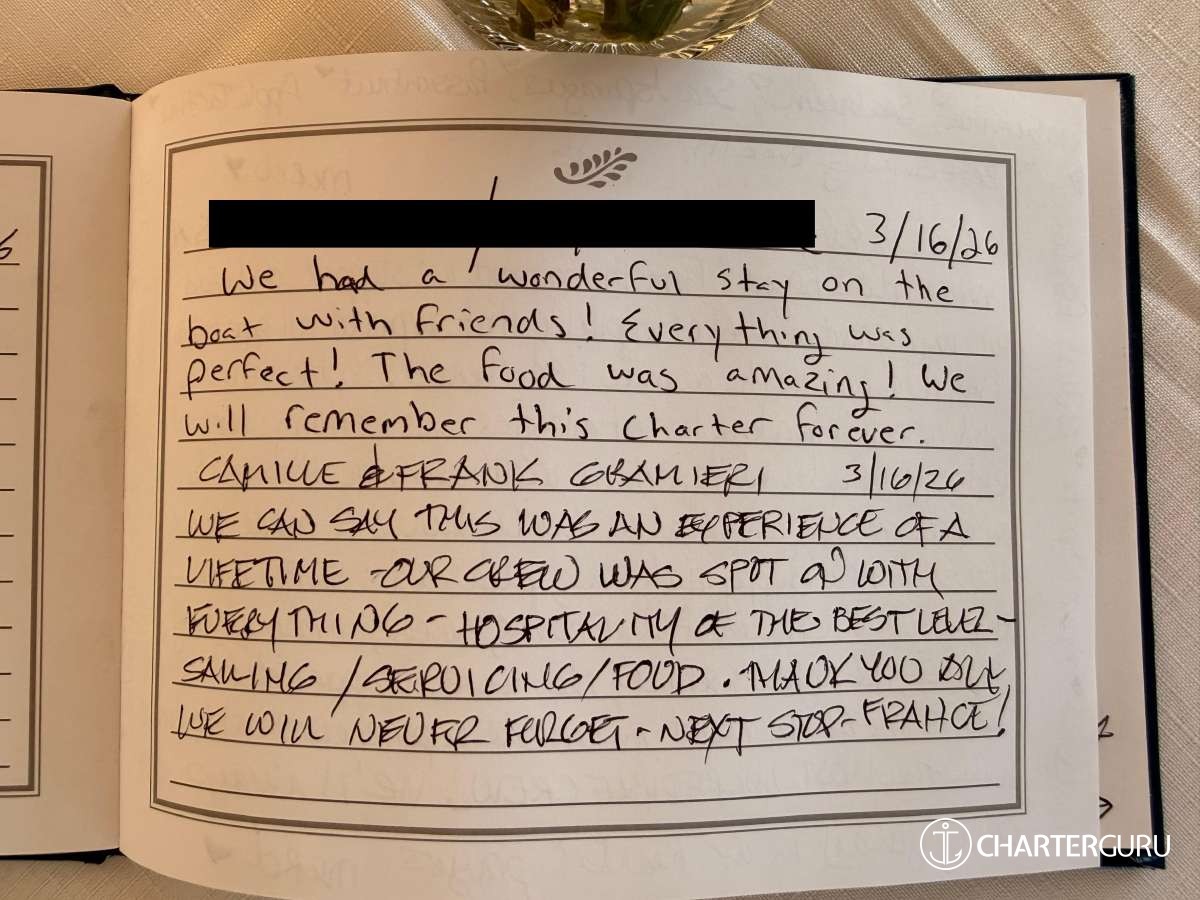 3/16/26
We had a wonderful stay on the
boat with friends! Everything was
perfect! The food was amazing! We
will remember this charter forever.
CAMILLE & FRANK GRAMIERI 3/16/26
WE CAN SAY THIS WAS AN EXPERIENCE OF A
LIFETIME - OUR CREW WAS SPOT ON WITH
EVERYTHING - HOSPITALITY OF THE BEST LEVEL -
SAILING / SERVICING / FOOD. THANK YOU ALL
WE WILL NEVER FORGET - NEXT STOP - FRANCE!
CHARTERGURU